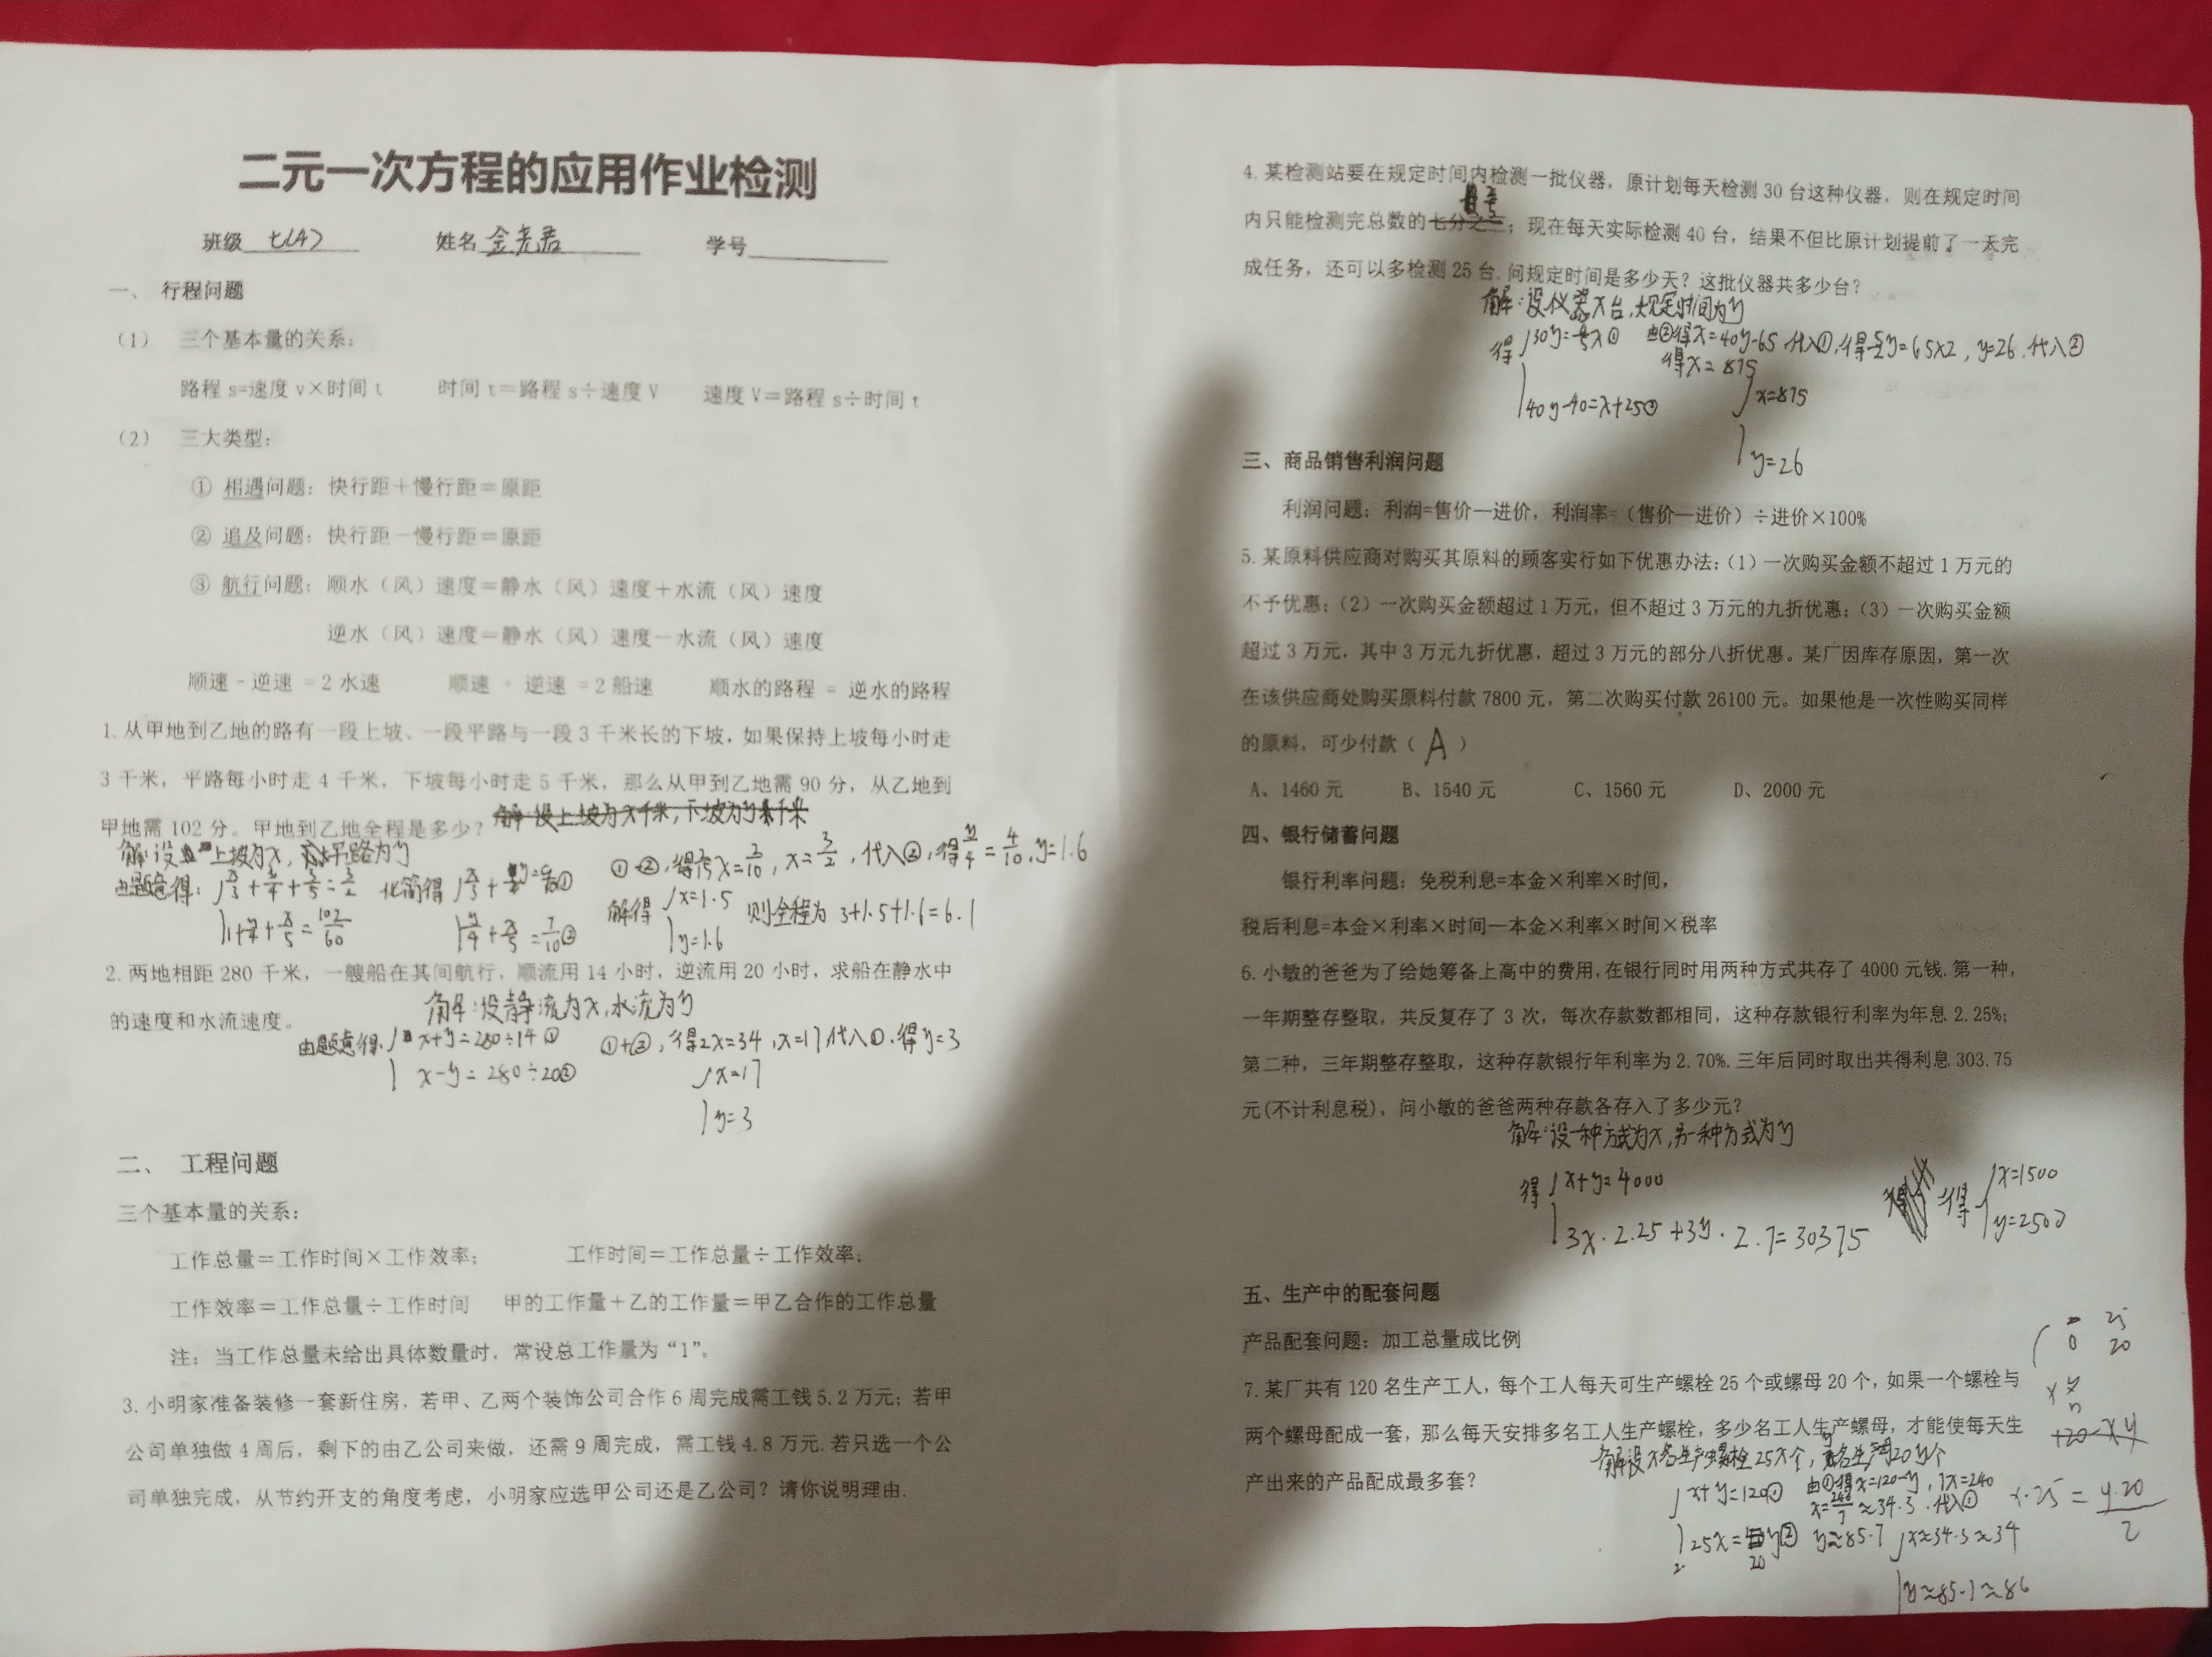 二元一次方程的应用作业检测
班级 七(4) 姓名 学号
一、 行程问题
(1) 三个基本量的关系:
路程 s=速度 v×时间 t 时间 t=路程 s÷速度 V 速度 V=路程 s÷时间 t
(2) 三大类型:
① 相遇问题: 快行距+慢行距=原距
② 追及问题: 快行距-慢行距=原距
③ 航行问题: 顺水(风)速度=静水(风)速度+水流(风)速度
逆水(风)速度=静水(风)速度-水流(风)速度
顺速-逆速=2水速 顺速 + 逆速=2船速 顺水的路程 = 逆水的路程
1.从甲地到乙地的路有一段上坡、一段平路与一段 3 千米长的下坡,如果保持上坡每小时走
3 千米,平路每小时走 4 千米,下坡每小时走 5 千米,那么从甲到乙地需 90 分,从乙地到
甲地需 102 分。甲地到乙地全程是多少?
解:设上坡为x,平路为y
由题意得: x/3+y/4+3/5=3/2 化简得 ①
1+y/4+x/5=102/60 y/4+x/5=7/10②
①-②,得2/15x=2/10,x=3/2,代入②,得y/4=4/10,y=1.6
解得 x=1.5 则全程为 3+1.5+1.6=6.1
y=1.6
2.两地相距 280 千米,一艘船在其间航行,顺流用 14 小时,逆流用 20 小时,求船在静水中
的速度和水流速度。
解:设静流为x,水流为y
由题意得, x+y=280÷14① ①+②,得2x=34,x=17代入①,得y=3
x-y=280÷20② x=17
y=3
二、 工程问题
三个基本量的关系:
工作总量=工作时间×工作效率; 工作时间=工作总量÷工作效率;
工作效率=工作总量÷工作时间 甲的工作量+乙的工作量=甲乙合作的工作总量
注: 当工作总量未给出具体数量时,常设总工作量为“1”。
3.小明家准备装修一套新住房,若甲、乙两个装饰公司合作 6 周完成需工钱 5.2 万元;若甲
公司单独做 4 周后,剩下的由乙公司来做,还需 9 周完成,需工钱 4.8 万元.若只选一个公
司单独完成,从节约开支的角度考虑,小明家应选甲公司还是乙公司?请你说明理由.
4.某检测站要在规定时间内检测一批仪器,原计划每天检测 30 台这种仪器,则在规定时间
内只能检测完总数的七分之三;现在每天实际检测 40 台,结果不但比原计划提前了一天完
成任务,还可以多检测 25 台.问规定时间是多少天?这批仪器共多少台?
解:设仪器x台,规定时间为y
得 ① 由②得x=40y-65 代入①,得 y=65×2,y=26.代入②
得x=875
40y-40=x+25② x=875
y=26
三、商品销售利润问题
利润问题: 利润=售价—进价,利润率=(售价—进价)÷进价×100%
5.某原料供应商对购买其原料的顾客实行如下优惠办法:(1)一次购买金额不超过 1 万元的
不予优惠;(2)一次购买金额超过 1 万元,但不超过 3 万元的九折优惠;(3)一次购买金额
超过 3 万元,其中 3 万元九折优惠,超过 3 万元的部分八折优惠。某厂因库存原因,第一次
在该供应商处购买原料付款 7800 元,第二次购买付款 26100 元。如果他是一次性购买同样
的原料,可少付款( A )
A、1460 元 B、1540 元 C、1560 元 D、2000 元
四、银行储蓄问题
银行利率问题: 免税利息=本金×利率×时间,
税后利息=本金×利率×时间—本金×利率×时间×税率
6.小敏的爸爸为了给她筹备上高中的费用,在银行同时用两种方式共存了 4000 元钱.第一种,
一年期整存整取,共反复存了 3 次,每次存款数都相同,这种存款银行利率为年息 2.25%;
第二种,三年期整存整取,这种存款银行年利率为 2.70%.三年后同时取出共得利息 303.75
元(不计利息税),问小敏的爸爸两种存款各存入了多少元?
解:设一种方式为x,另一种方式为y
得 x+y=4000 得 x=1500
3x·2.25+3y·2.7=30375 y=2500
五、生产中的配套问题
产品配套问题: 加工总量成比例
7.某厂共有 120 名生产工人,每个工人每天可生产螺栓 25 个或螺母 20 个,如果一个螺栓与
两个螺母配成一套,那么每天安排多名工人生产螺栓,多少名工人生产螺母,才能使每天生
产出来的产品配成最多套?
解设x名生产螺栓25x个,y名生产20y个
x+y=120① 由①得x=120-y,7x=240
x=240/7≈34.3.代入①
y≈85.7 x≈34.3≈34
y≈85.7≈86
25
0 20
120-x y
x·25=y·20/2